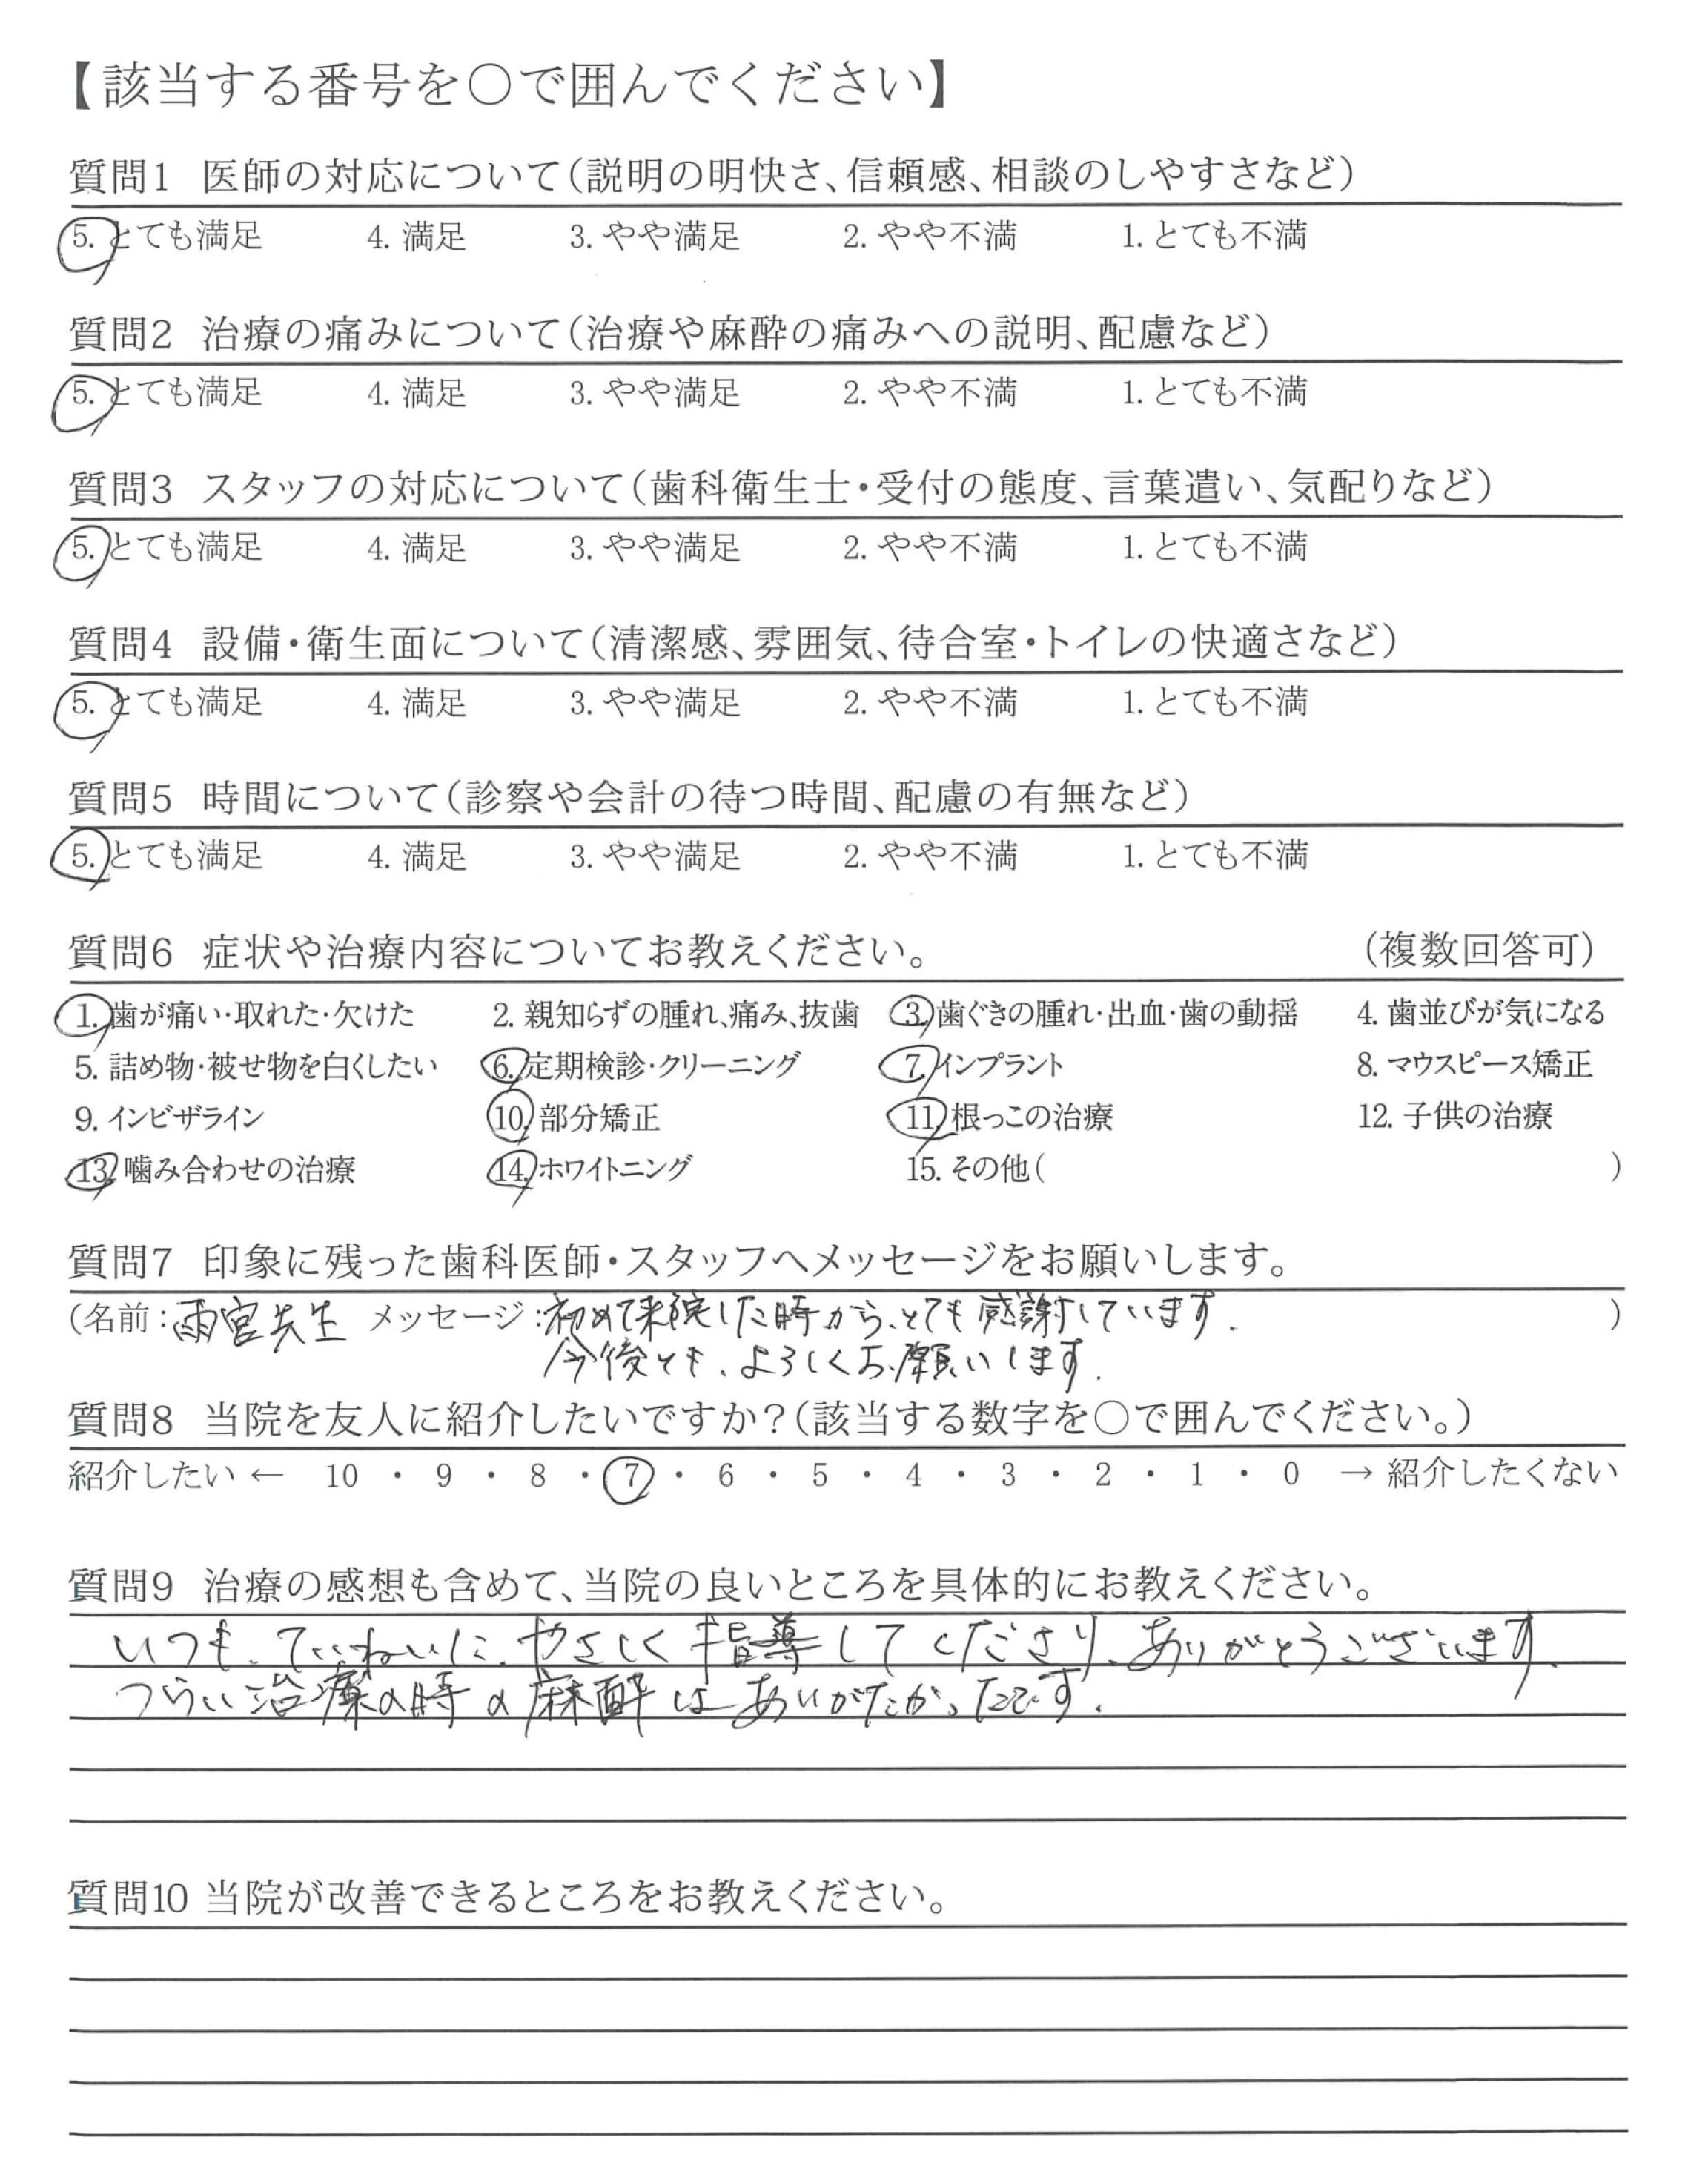 【該当する番号を〇で囲んでください】
質問1 医師の対応について(説明の明快さ、信頼感、相談のしやすさなど)
5. とても満足 4. 満足 3. やや満足 2. やや不満 1. とても不満
質問2 治療の痛みについて(治療や麻酔の痛みへの説明、配慮など)
5. とても満足 4. 満足 3. やや満足 2. やや不満 1. とても不満
質問3 スタッフの対応について(歯科衛生士・受付の態度、言葉遣い、気配りなど)
5. とても満足 4. 満足 3. やや満足 2. やや不満 1. とても不満
質問4 設備・衛生面について(清潔感、雰囲気、待合室・トイレの快適さなど)
5. とても満足 4. 満足 3. やや満足 2. やや不満 1. とても不満
質問5 時間について(診察や会計の待つ時間、配慮の有無など)
5. とても満足 4. 満足 3. やや満足 2. やや不満 1. とても不満
質問6 症状や治療内容についてお教えください。 (複数回答可)
1. 歯が痛い・取れた・欠けた 2. 親知らずの腫れ、痛み、抜歯 3. 歯ぐきの腫れ・出血・歯の動揺 4. 歯並びが気になる
5. 詰め物・被せ物を白くしたい 6. 定期検診・クリーニング 7. インプラント 8. マウスピース矯正
9. インビザライン 10. 部分矯正 11. 根っこの治療 12. 子供の治療
13. 噛み合わせの治療 14. ホワイトニング 15. その他( )
質問7 印象に残った歯科医師・スタッフへメッセージをお願いします。
(名前:雨宮先生 メッセージ:初めて来院した時から、とても感謝しています. )
今後とも、よろしくお願いします.
質問8 当院を友人に紹介したいですか?(該当する数字を〇で囲んでください。)
紹介したい ← 10 ・ 9 ・ 8 ・ 7 ・ 6 ・ 5 ・ 4 ・ 3 ・ 2 ・ 1 ・ 0 → 紹介したくない
質問9 治療の感想も含めて、当院の良いところを具体的にお教えください。
いつも、ていねいに、やさしく指導してくださり、ありがとうございます.
つらい治療の時の麻酔はありがたかったです.
質問10 当院が改善できるところをお教えください。